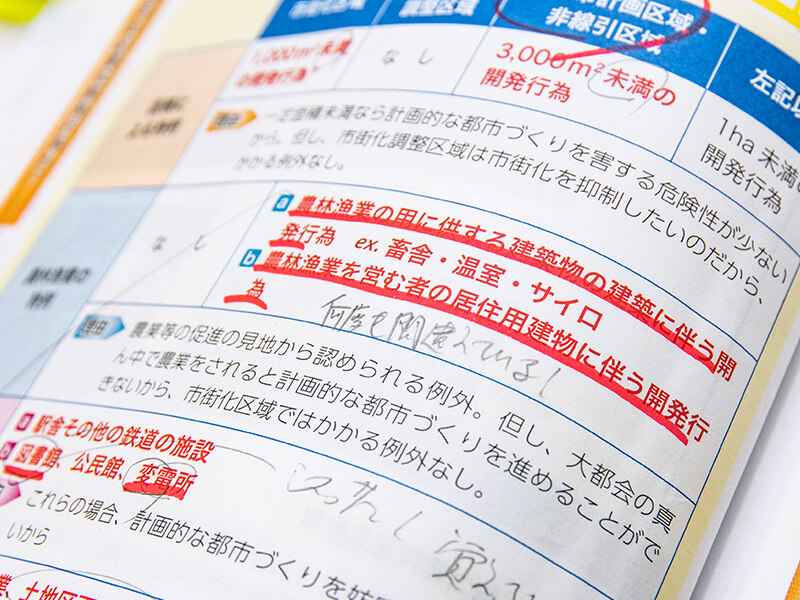 市街化区域
調整区域
計画区域・
非線引区域
左記以
1,000m²未満
の開発行為
なし
3,000m²未満の
開発行為
1ha未満
開発行為
理由
一定面積未満なら計画的な都市づくりを害する危険性が少ない
から。但し、市街化調整区域は市街化を抑制したいのだから、
かかる例外なし。
農林漁業の
特例
なし
a 農林漁業の用に供する建築物の建築に伴う開
発行為 ex. 畜舎・温室・サイロ
b 農林漁業を営む者の居住用建物に伴う開発行
為
何度も間違えているし
理由
農業等の促進の見地から認められる例外。但し、大都会の真
ん中で農業をされると計画的な都市づくりを進めることがで
きないから、市街化区域ではかかる例外なし。
a 駅舎その他の鉄道の施設
b 図書館、公民館、変電所
しっかり覚えて
これらの場合、計画的な都市づくりを妨
いから
土地区画